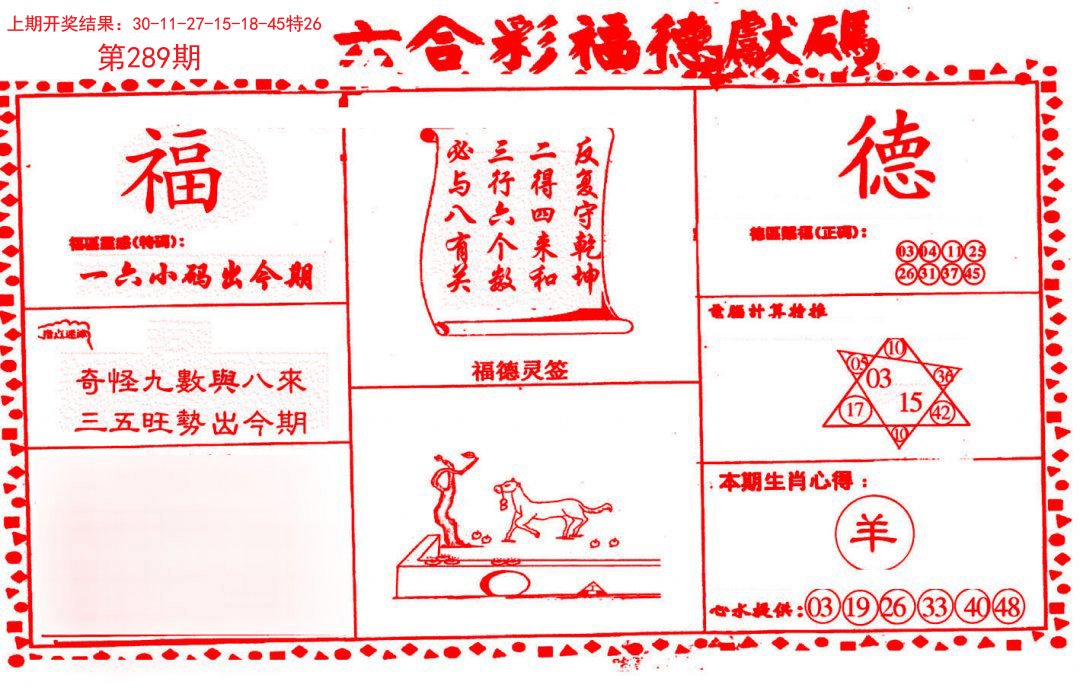 上期开奖结果：30-11-27-15-18-45特26
第289期
六合彩福德獻碼
福
福區靈感(特碼)：
一六小码出今期
指点迷津
奇怪九數與八來
三五旺勢出今期
反复守乾坤
二得四来和
三行六个数
必与八有关
福德灵签
德
德區賜福(正碼)：
03 04 11 25
26 31 37 45
電腦計算特推
10
05 03 36
17 15 42
10
本期生肖心得：
羊
心水提供：03 19 26 33 40 48